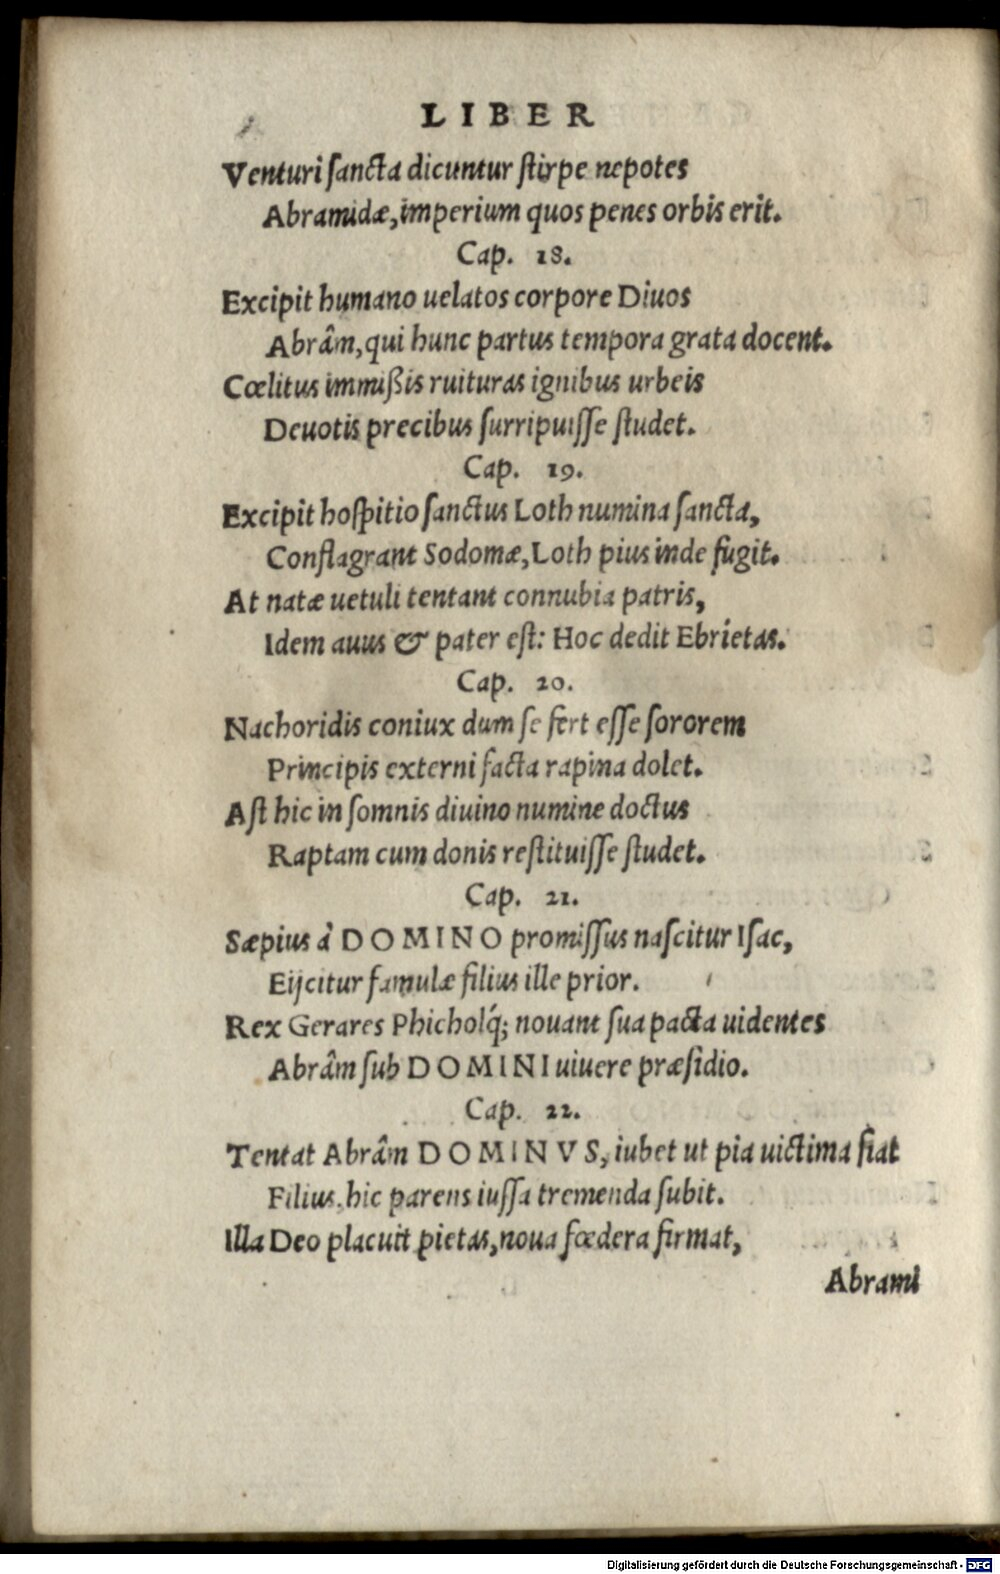 LIBER
Venturi ſancta dicuntur ſtirpe nepotes
Abramidæ, imperium quos penes orbis erit.
Cap. 18.
Excipit humano uelatos corpore Diuos
Abrâm, qui hunc partus tempora grata docent.
Cœlitus immißis ruituras ignibus urbeis
Deuotis precibus ſurripuiſſe ſtudet.
Cap. 19.
Excipit hoſpitio ſanctus Loth numina ſancta,
Conflagrant Sodomæ, Loth pius inde fugit.
At natæ uetuli tentant connubia patris,
Idem auus & pater eſt: Hoc dedit Ebrietas.
Cap. 20.
Nachoridis coniux dum ſe fert eſſe ſororem
Principis externi facta rapina dolet.
Aſt hic in ſomnis diuino numine doctus
Raptam cum donis reſtituiſſe ſtudet.
Cap. 21.
Sæpius à DOMINO promiſſus naſcitur Iſac,
Eijcitur famulæ filius ille prior.
Rex Gerares Phicholq́; nouant ſua pacta uidentes
Abrâm ſub DOMINI uiuere præſidio.
Cap. 22.
Tentat Abrâm DOMINVS, iubet ut pia uictima fiat
Filius, hic parens iuſſa tremenda ſubit.
Illa Deo placuit pietas, noua fœdera firmat,
Abrami
Digitalisierung gefördert durch die Deutsche Forschungsgemeinschaft - DFG